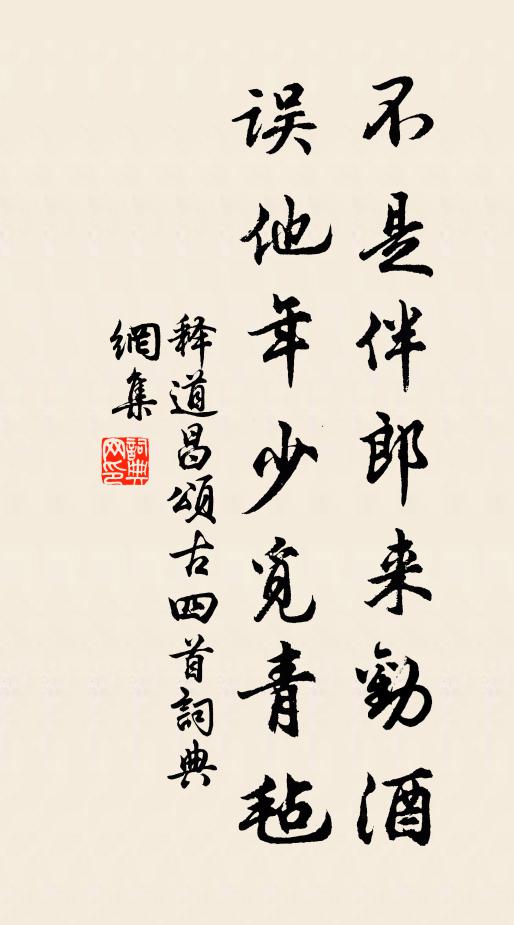 不是伴郎来勸酒
误他年少覓青毡
释道昌頌古四首詞典
網集
詞典
网印